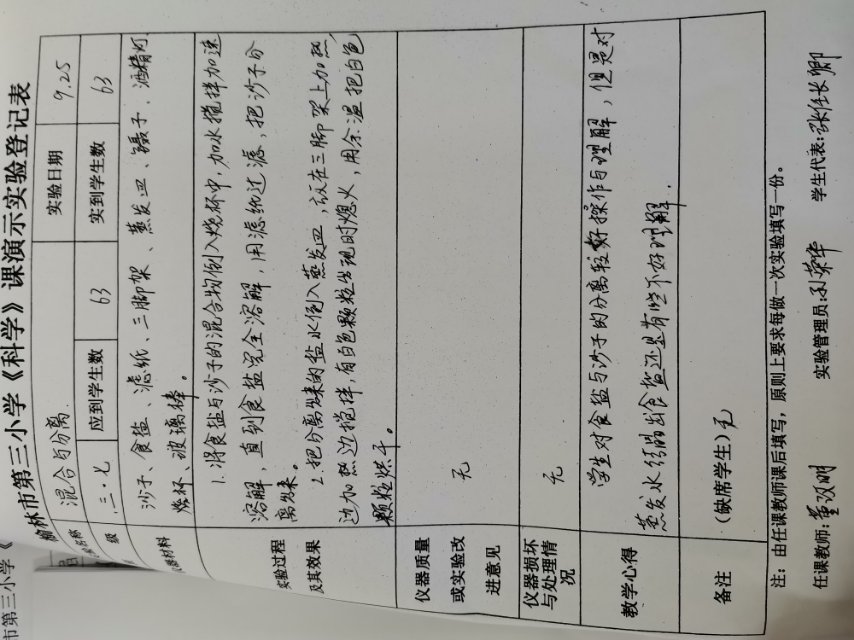 榆林市第三小学《科学》课演示实验登记表
名称 混合与分离 实验日期 9.25
级 三.七 应到学生数 63 实到学生数 63
器材料 沙子、食盐、滤纸、三脚架、蒸发皿、聂子、酒精灯
烧杯、玻璃棒。
实验过程及其效果
1.将食盐与沙子的混合物倒入烧杯中,加水搅拌加速
溶解,直到食盐完全溶解,用滤纸过滤,把沙子分
离出来。
2.把分离出来的盐水倒入蒸发皿,放在三脚架上加热,
边加热边搅拌,有白色颗粒出现时熄火,用余温把白色
颗粒烘干。
仪器质量或实验改进意见 无
仪器损坏与处理情况 无
教学心得
学生对食盐与沙子的分离较好操作与理解,但是对
蒸发水结晶出食盐还是有些不好理解.
备注 (缺席学生)无
注:由任课教师课后填写,原则上要求每做一次实验填写一份。
任课教师: 实验管理员: 学生代表:
市第三小学《